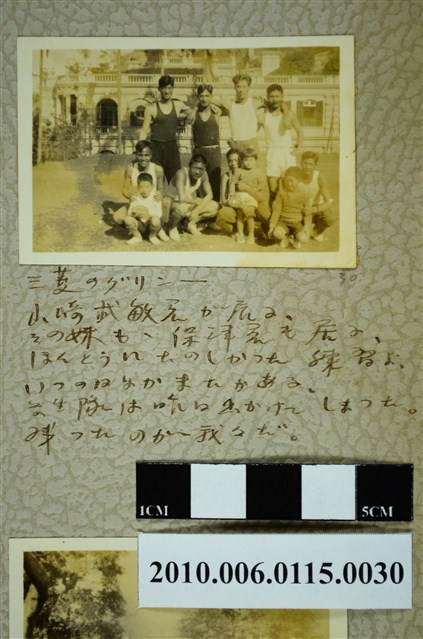 三菱のグリンー
30
山崎武敏君が居る、
その妹も、保津君も居る、
ほんとうにたのしかつた練習よ、
いつの日か またがある、
学生隊は昨日出かけて しまつた。
残つたのが 我々だ。
1CM 5CM
2010.006.0115.0030